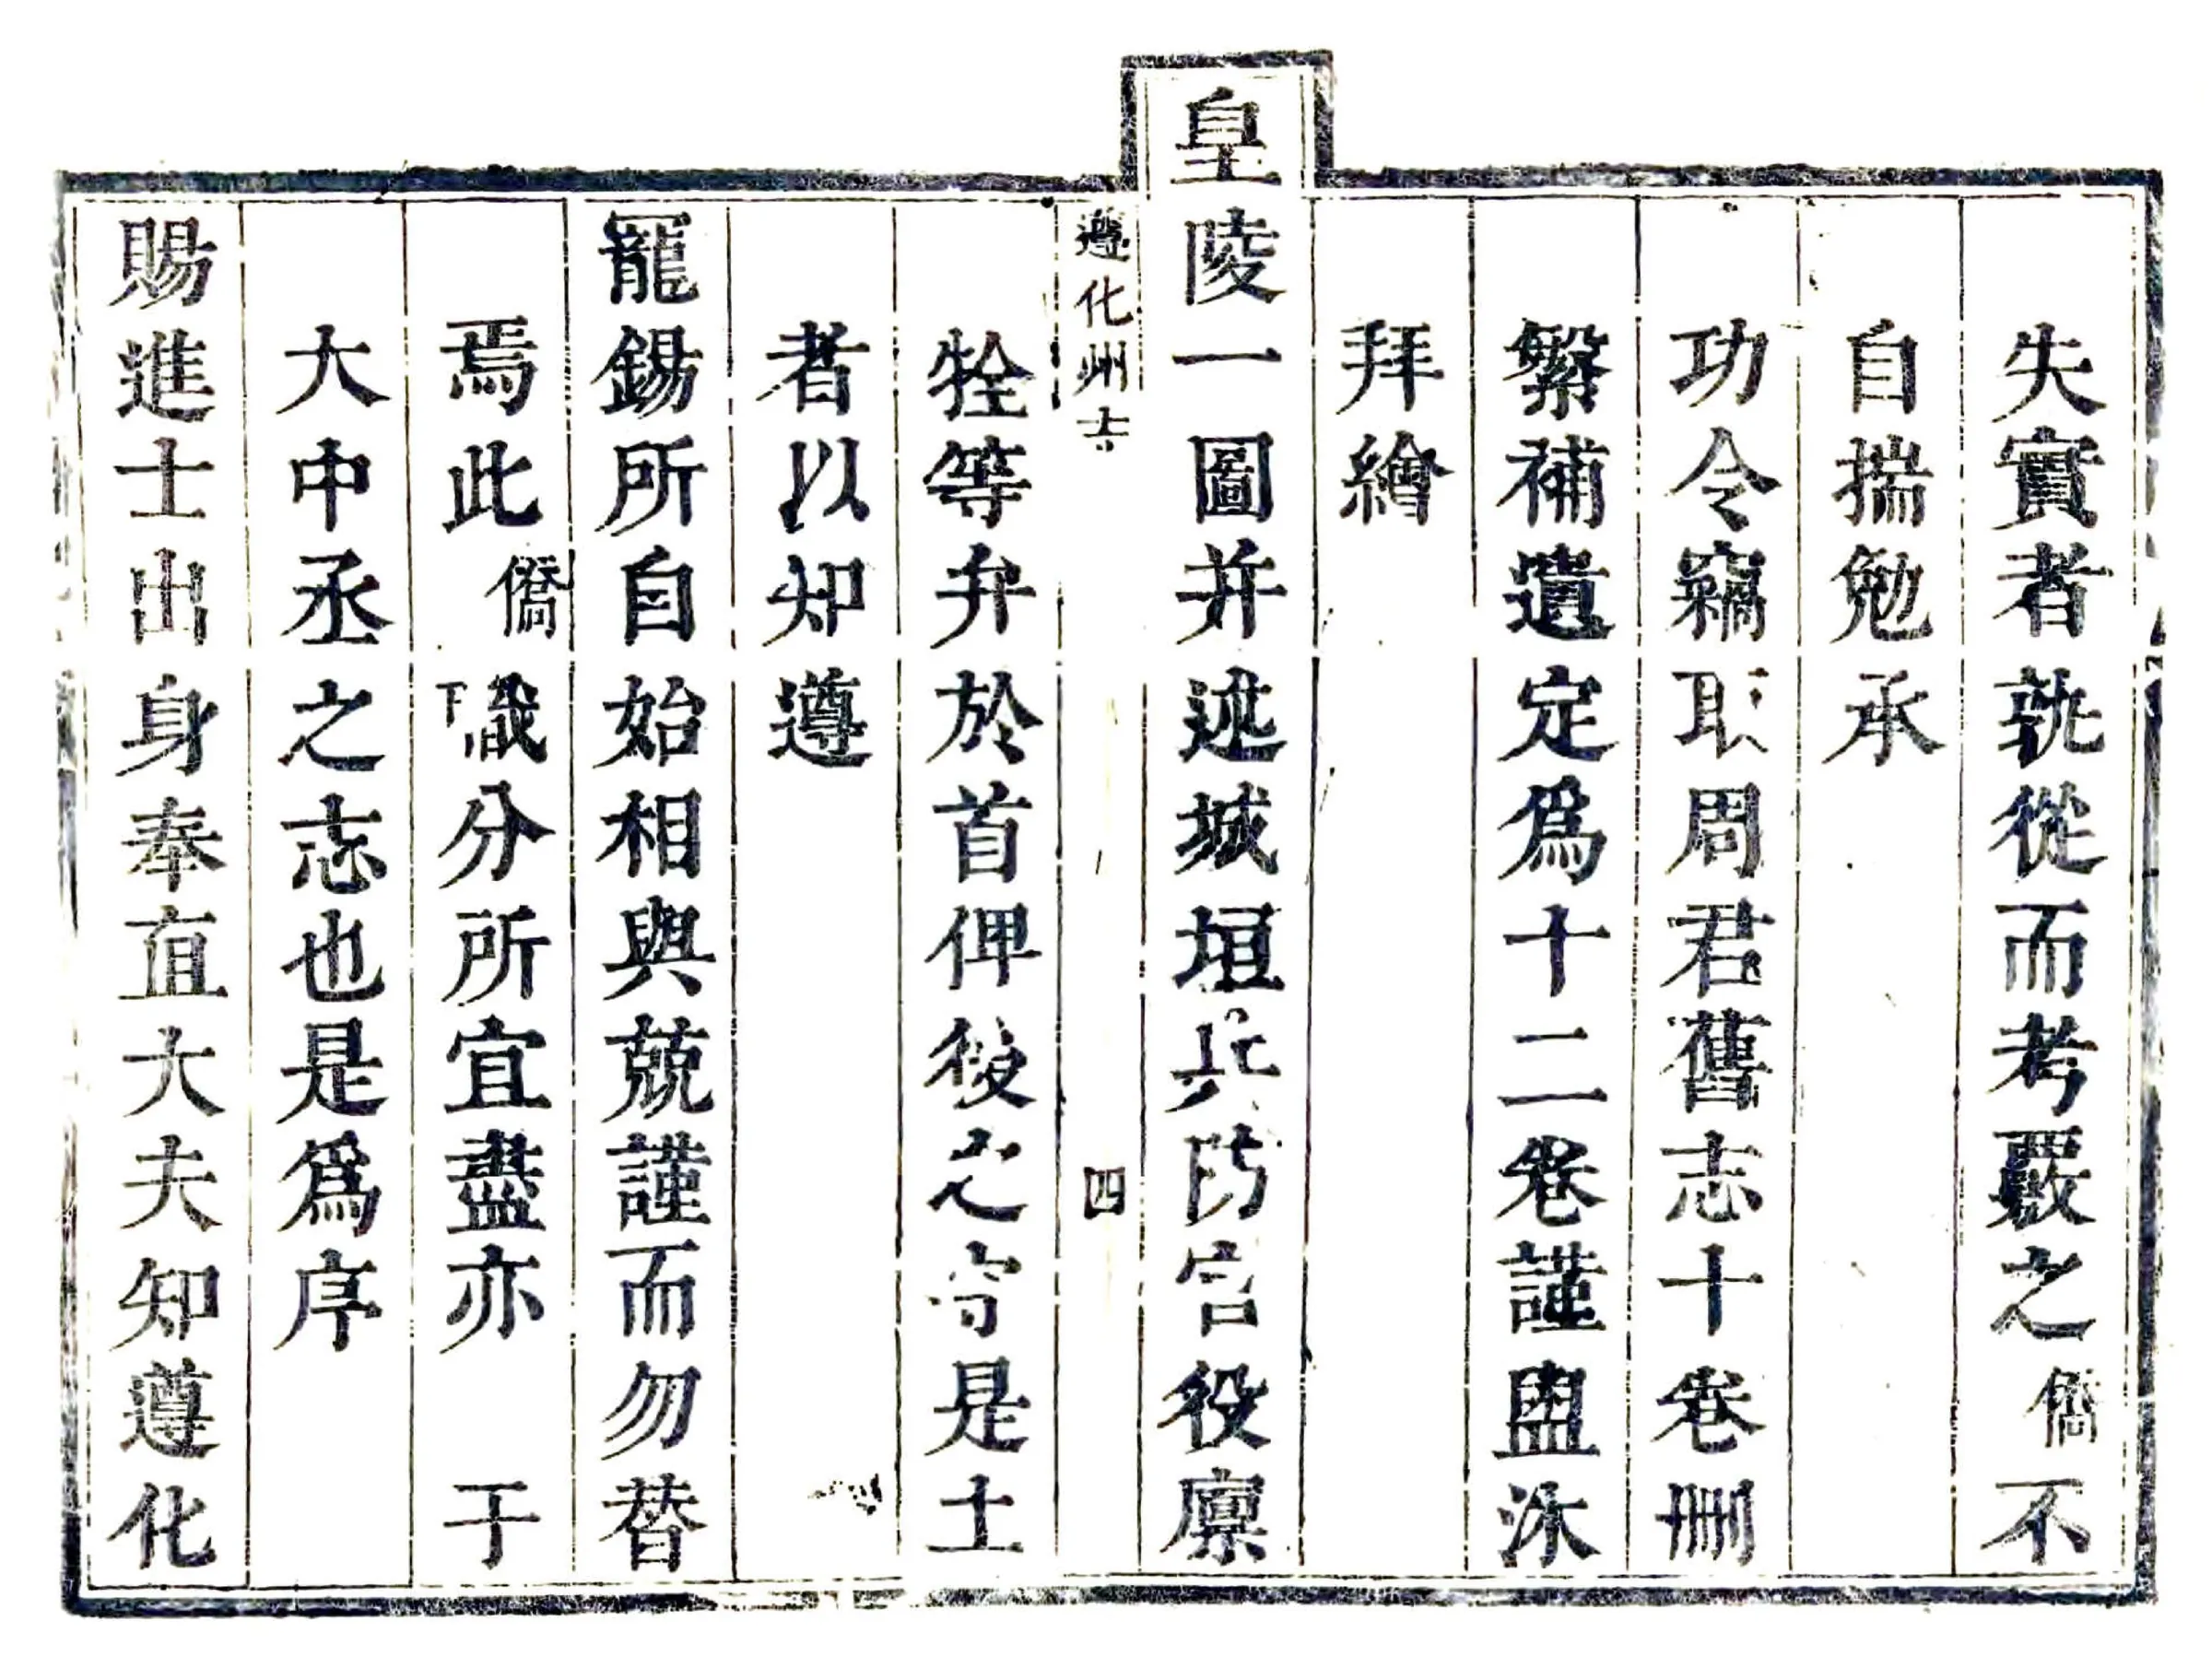 失實者孰從而考覈之僑不
自揣勉承
功令竊取周君舊志十卷刪
繁補遺定爲十二卷謹盥沐
拜繪
皇陵一圖并述城垣兵防官役廪
遵化州志
四
牷等弁於首俾後之守是土
者以知遵
寵錫所自始相與兢謹而勿替
焉此僑下職分所宜盡亦于
大中丞之志也是爲序
賜進士出身奉直大夫知遵化